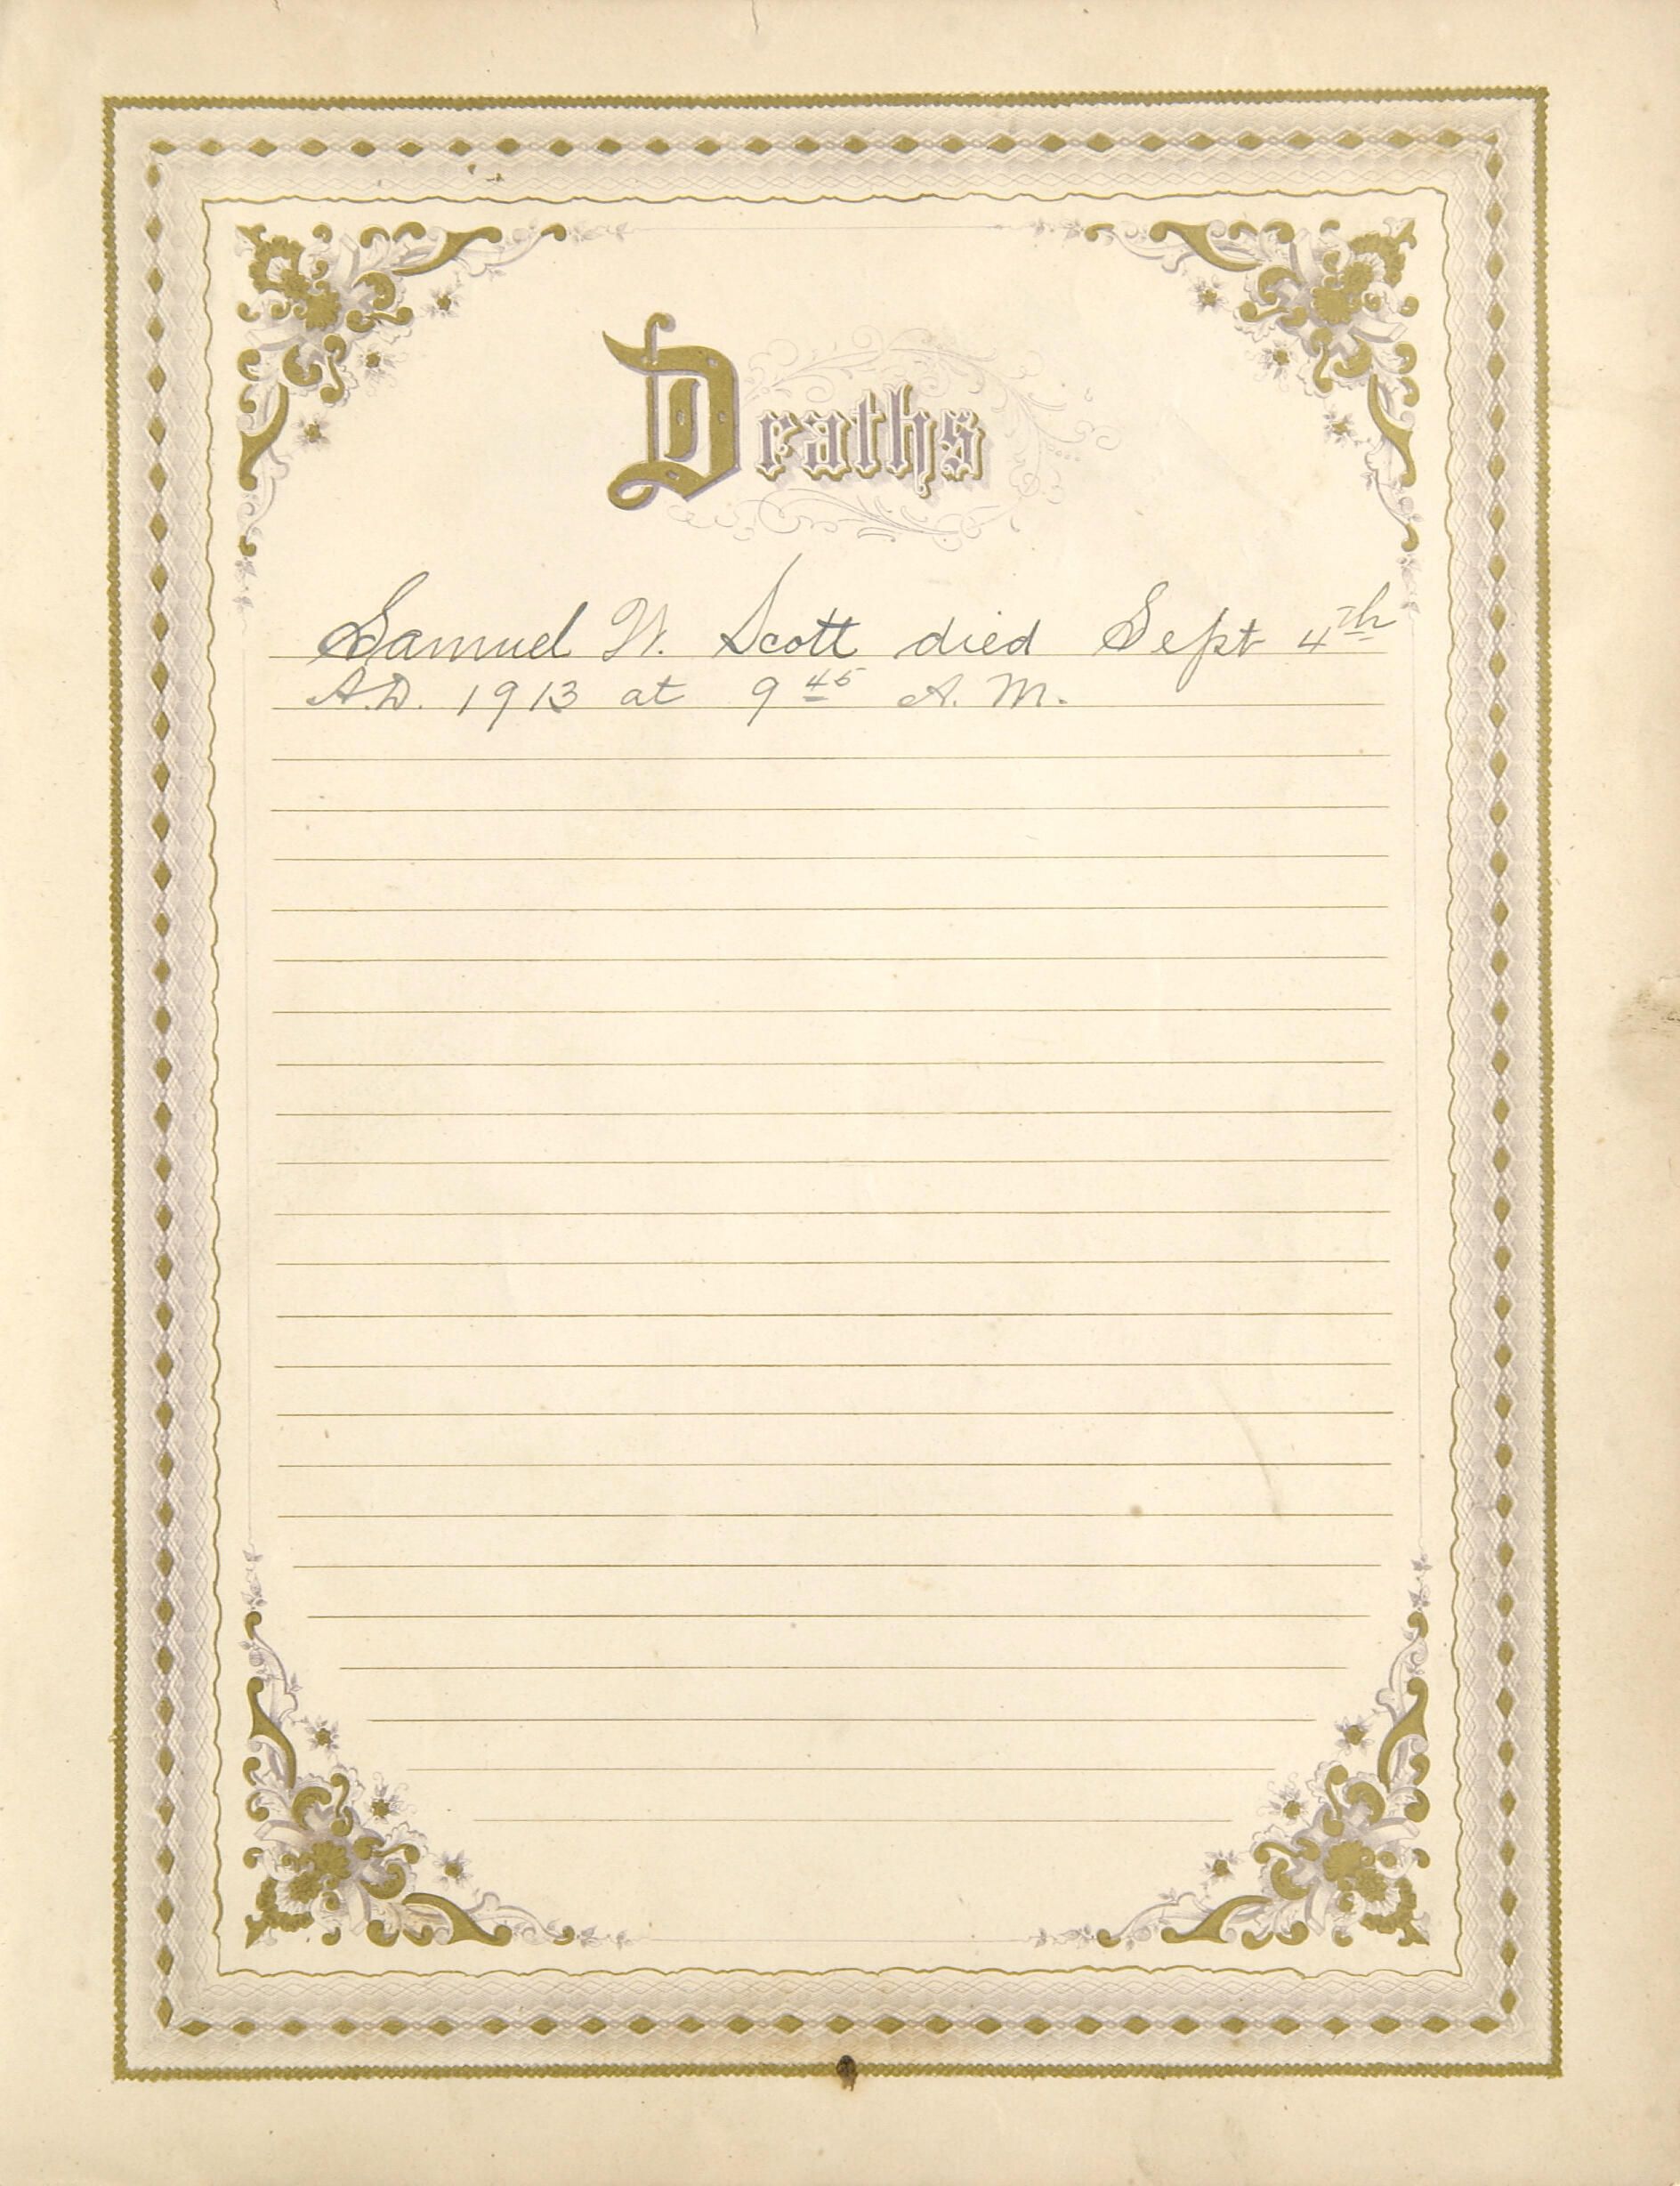 Deaths
Samuel W. Scott died Sept 4th
A.D. 1913 at 9 45 A.M.